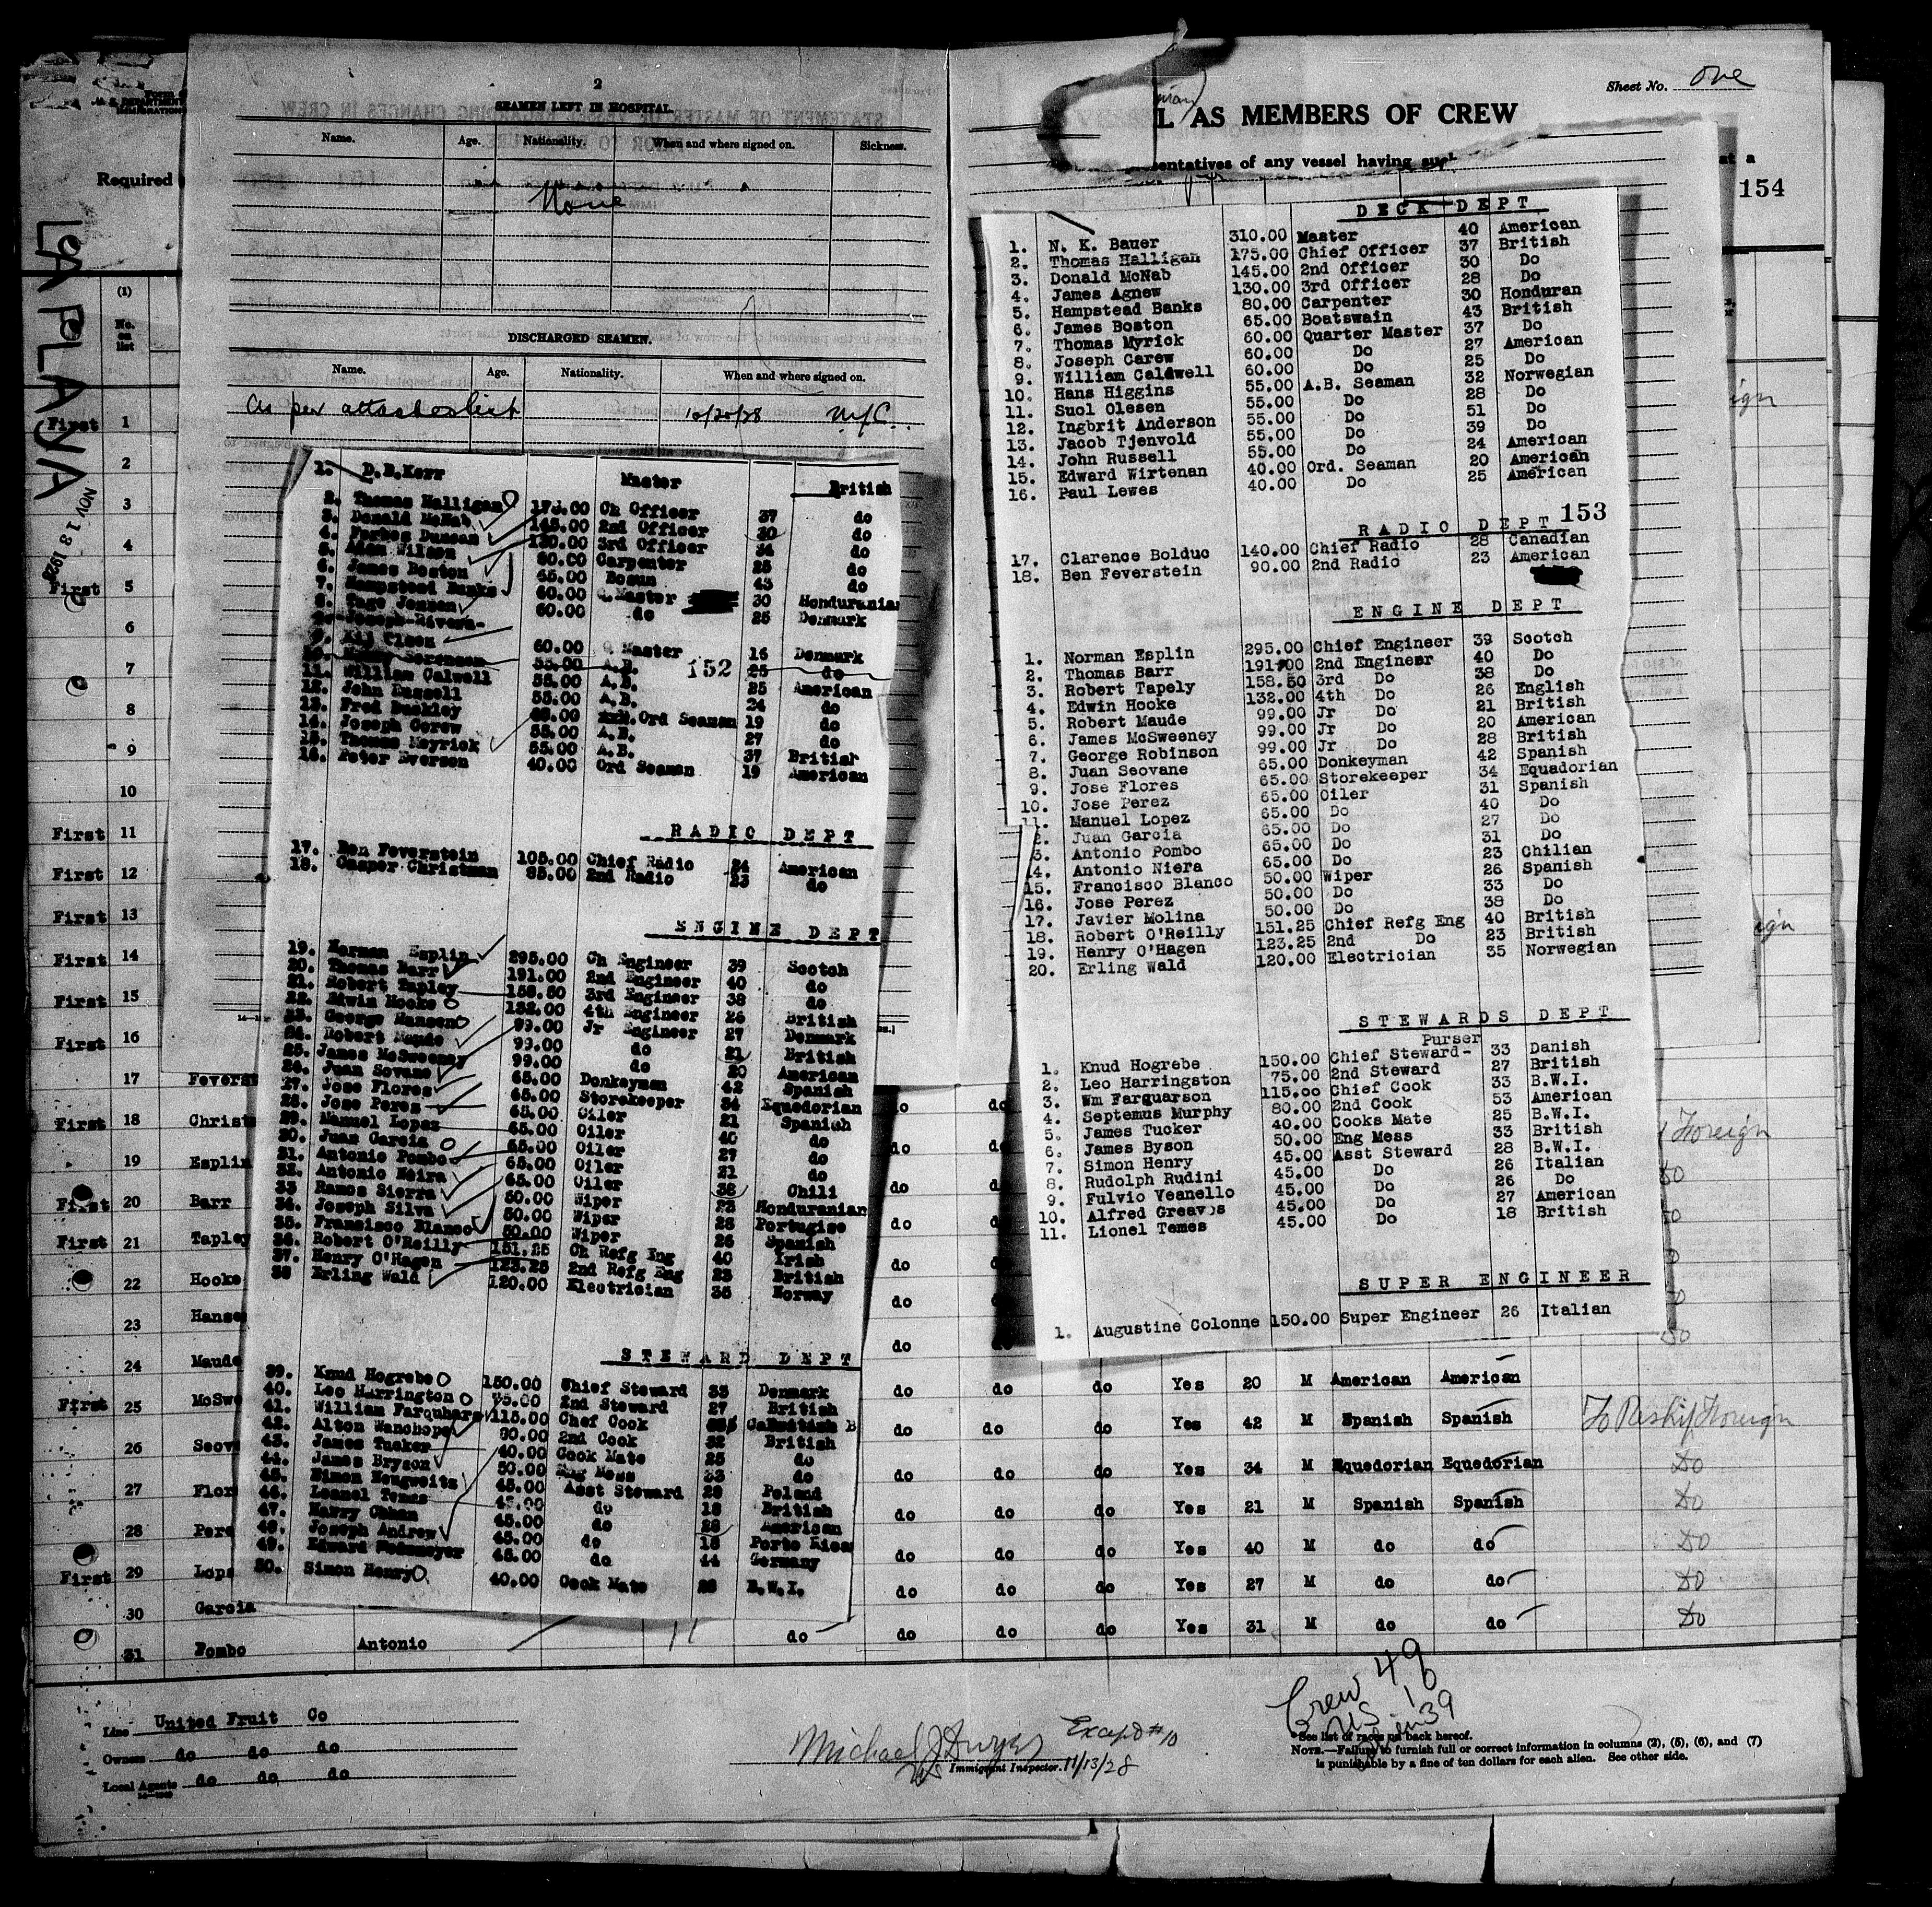 2
SEAMEN LEFT IN HOSPITAL.
Name. Age. Nationality. When and where signed on. Sickness.
None
DISCHARGED SEAMEN.
Name. Age. Nationality. When and where signed on.
As per attached list 10/20/28 NYC.
1. D.B.Kerr Master British
2. Thomas Halligan 175.00 Ch Officer 37 do
3. Donald McNab 145.00 2nd Officer 30 do
4. Forbes Duncan 130.00 3rd Officer 34 do
5. Alan Wilson 80.00 Carpenter 25 do
6. James Boston 65.00 Bosun 43 do
7. Hampstead Banks 60.00 Q.Master 30 Hondurania
8. Tage Jensen 60.00 do 25 Denmark
Joseph Rivera
9. Kij Olsen 60.00 Q Master 16 Denmark
10. Sorensen 55.00 A.B. 25 do
152
11. William Calwell 55.00 A.B. 25 American
12. John Russell 55.00 A.B. 24 do
13. Fred Buckley Ord Seaman 19 do
14. Joseph Corew 55.00 A.B. 27 do
15. Thomas Meyrick 55.00 A.B. 37 British
16. Peter Everson 40.00 Ord Seaman 19 American
RADIO DEPT
17. Ben Feverstein 105.00 Chief Radio 24 American
18. Casper Christman 85.00 2nd Radio 23 do
ENGINE DEPT
19. Norman Esplin 295.00 Ch Engineer 39 Scotch
20. Thomas Barr 191.00 2nd Engineer 40 do
21. Robert Tapley 158.50 3rd Engineer 38 do
22. Edwin Hooke 132.00 4th Engineer 26 British
23. George Hansen 99.00 Jr Engineer 27 Denmark
24. Robert Maude 99.00 do 21 British
25. James McSweeney 99.00 do 20 American
26. Juan Sovane 65.00 Donkeyman 42 Spanish
27. Jose Flores 65.00 Storekeeper 34 Equedorian
28. Jose Peres 65.00 Oiler 21 Spanish
29. Manuel Lopez 65.00 Oiler 40 do
30. Juan Garcia 65.00 Oiler 27 do
31. Antonio Pombo 65.00 Oiler 31 do
32. Antonio Neira 65.00 Oiler 38 Chili
33 Ramos Sierra 50.00 Wiper Honduranian
34. Joseph Silva 50.00 Wiper 28 Portugise
35. Francisco Blanco 50.00 Wiper 26 Spanish
36. Robert O'Reilly 151.25 Ch Refg Eng 40 Irish
37. Henry O'Hagen 123.25 2nd Refg Eng 23 British
38 Erling Wald 120.00 Electrician 35 Norway
STEWARD DEPT
39. Knud Hogrebe 150.00 Chief Steward 33 Denmark
40. Leo Harrington 75.00 2nd Steward 27 British
41. William Farquhars 115.00 Chef Cook B
42. Alton Wanchope 80.00 2nd Cook 32 British
43. James Tucker 40.00 Cook Mate 25 do
44. James Bryson 50.00 Eng Mess 33 do
45. Simon 45.00 Asst Steward 28 Poland
46. Leonel Temas 45.00 do 18 British
47. Harry Chhan 45.00 do 28 American
48. Joseph Andrew 45.00 do 18 Porto Rica
49. Edward 45.00 do 44 Germany
50. Simon Henry 40.00 Cook Mate 28 B.W.I.
Sheet No. One
L AS MEMBERS OF CREW
sentatives of any vessel having such
154
DECK DEPT
1. N. K. Bauer 310.00 Master 40 American
2. Thomas Halligan 175.00 Chief Officer 37 British
3. Donald McNab 145.00 2nd Officer 30 Do
4. James Agnew 130.00 3rd Officer 28 Do
5. Hampstead Banks 80.00 Carpenter 30 Honduran
6. James Boston 65.00 Boatswain 43 British
7. Thomas Myrick 60.00 Quarter Master 37 Do
8. Joseph Carew 60.00 Do 27 American
9. William Caldwell 60.00 Do 25 Do
10. Hans Higgins 55.00 A.B. Seaman 32 Norwegian
11. Suol Olesen 55.00 Do 28 Do
12. Ingbrit Anderson 55.00 Do 51 Do
13. Jacob Tjenvold 55.00 Do 39 Do
14. John Russell 55.00 Do 24 American
15. Edward Wirtenan 40.00 Ord. Seaman 20 American
16. Paul Lewes 40.00 Do 25 American
153
RADIO DEPT
17. Clarence Bolduc 140.00 Chief Radio 28 Canadian
18. Ben Feverstein 90.00 2nd Radio 23 American
ENGINE DEPT
1. Norman Esplin 295.00 Chief Engineer 39 Scotch
2. Thomas Barr 191.00 2nd Engineer 40 Do
3. Robert Tapely 158.50 3rd Do 38 Do
4. Edwin Hooke 132.00 4th Do 26 English
5. Robert Maude 99.00 Jr Do 21 British
6. James McSweeney 99.00 Jr Do 20 American
7. George Robinson 99.00 Jr Do 28 British
8. Juan Seovane 65.00 Donkeyman 42 Spanish
9. Jose Flores 65.00 Storekeeper 34 Equadorian
10. Jose Perez 65.00 Oiler 31 Spanish
11. Manuel Lopez 65.00 Do 40 Do
2. Juan Garcia 65.00 Do 27 Do
3. Antonio Pombo 65.00 Do 31 Do
14. Antonio Niera 65.00 Do 23 Chilian
15. Francisco Blanco 50.00 Wiper 26 Spanish
16. Jose Perez 50.00 Do 33 Do
17. Javier Molina 50.00 Do 38 Do
18. Robert O'Reilly 151.25 Chief Refg Eng 40 British
19. Henry O'Hagen 123.25 2nd Do 23 British
20. Erling Wald 120.00 Electrician 35 Norwegian
STEWARDS DEPT
Purser
1. Knud Hogrebe 150.00 Chief Steward- 33 Danish
2. Leo Harringston 75.00 2nd Steward 27 British
3. Wm Farguarson 115.00 Chief Cook 33 B.W.I.
4. Septemus Murphy 80.00 2nd Cook 53 American
5. James Tucker 40.00 Cooks Mate 25 B.W.I.
6. James Byson 50.00 Eng Mess 33 British
7. Simon Henry 45.00 Asst Steward 28 B.W.I.
8. Rudolph Rudini 45.00 Do 26 Italian
9. Fulvio Veanello 45.00 Do 26 Do
10. Alfred Greaves 45.00 Do 27 American
11. Lionel Temes 45.00 Do 18 British
SUPER ENGINEER
1. Augustine Colonne 150.00 Super Engineer 26 Italian
Required
LA PLAYA
NOV 13 1928
(1)
No. on list
First 1
2
3
4
First 5
6
7
8
9
10
First 11
First 12
First 13
First 14
First 15
First 16
17 Feverst
First 18 Christ do do Foreign
19 Esplin do do
First 20 Barr do do
First 21 Tapley do do
22 Hooke do
23 Hanse do do
24 Maude do do do Yes 20 M American American
First 25 McSwe do do do Yes 42 M Spanish Spanish To Reship Foreign
26 Seov do do do Yes 34 M Equedorian Equedorian Do
27 Flor do do do Yes 21 M Spanish Spanish Do
28 Pere do do do Yes 40 M do do Do
First 29 Lope do do do Yes 27 M do do Do
30 Garcia do do do Yes 31 M do do Do
31 Pombo Antonio do
Line United Fruit Co
Owners do do do
Local Agents do do do
Michael J Dwyer
US Immigrant Inspector. 11/13/28
Except #10
Crew 49
US 10
Alien 39
*See list of races on back hereof.
NOTE.—Failure to furnish full or correct information in columns (2), (5), (6), and (7)
is punishable by a fine of ten dollars for each alien. See other side.